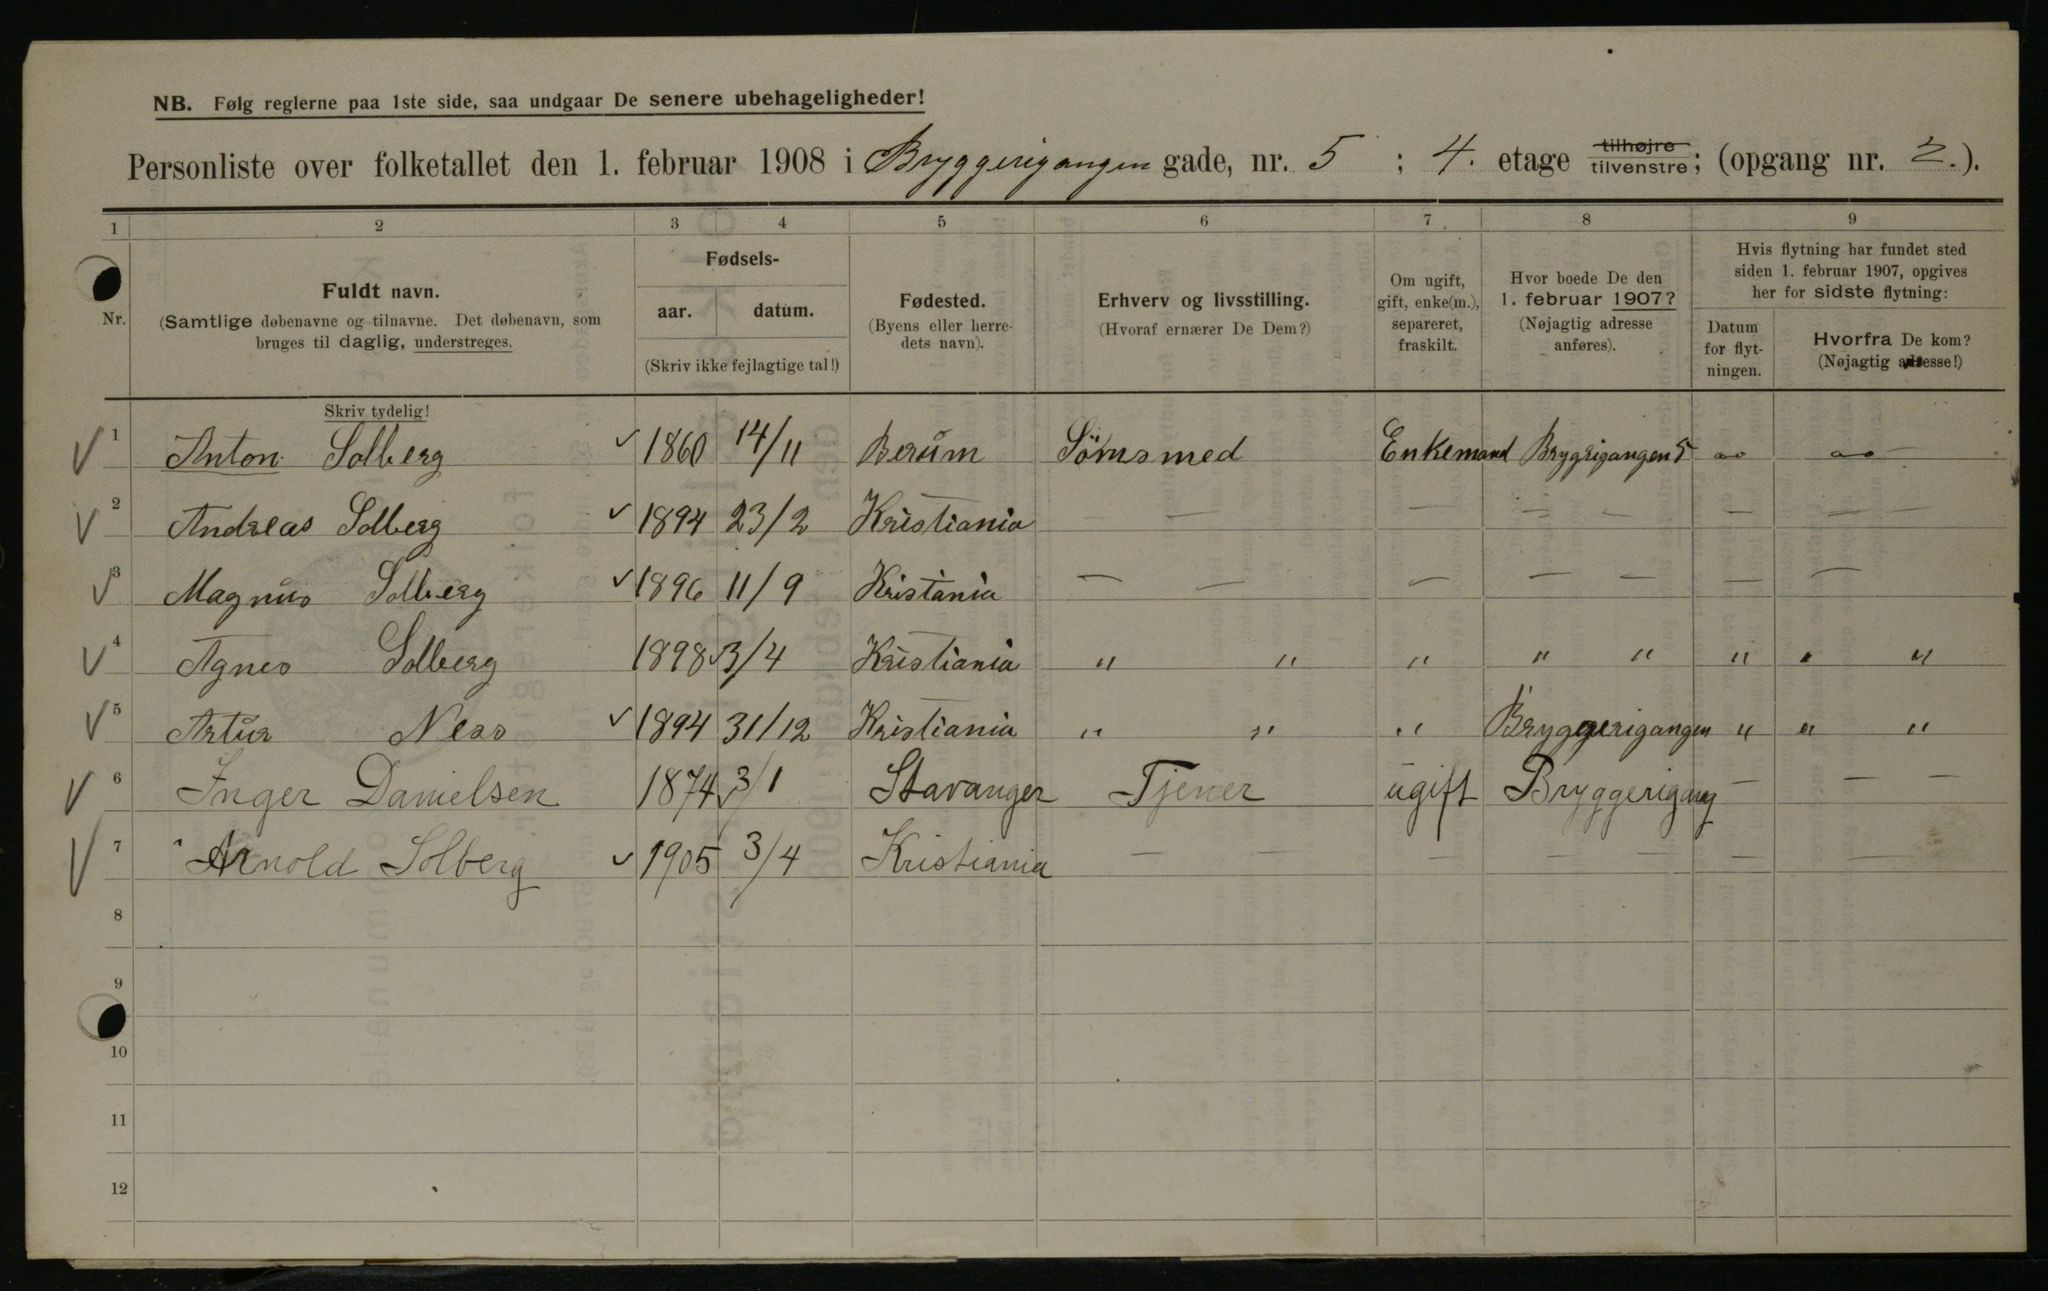 NB. Følg reglerne paa 1ste side, saa undgaar De senere ubehageligheder!
Personliste over folketallet den 1. februar 1908 i Bryggerigangen gade, nr. 5 ; 4. etage tilhøjre tilvenstre; (opgang nr. 2.).
1 2 3 4 5 6 7 8 9
Nr.
Fuldt navn.
(Samtlige døbenavne og tilnavne. Det døbenavn, som
bruges til daglig, understreges.
Skriv tydelig!
Fødsels-
aar. datum.
(Skriv ikke fejlagtige tal!)
Fødested.
(Byens eller herre-
dets navn).
Erhverv og livsstilling.
(Hvoraf ernærer De Dem?)
Om ugift,
gift, enke(m.),
separeret,
fraskilt.
Hvor boede De den
1. februar 1907?
(Nøjagtig adresse
anføres).
Hvis flytning har fundet sted
siden 1. februar 1907, opgives
her for sidste flytning:
Datum
for flyt-
ningen.
Hvorfra De kom?
(Nøjagtig adresse!)
1 Anton Solberg 1860 14/11 Berum Sömsmed Enkemand Brygrigangen 5
2 Andreas Solberg 1894 23/2 Kristiania — — — — — — —
3 Magnus Solberg 1896 11/9 Kristania — — — — — — —
4 Agnes Solberg 1898 3/4 Kristiania " " " " " " " "
5 Artur Ness 1894 31/12 Kristiania " " " Bryggerigangen " " "
6 Inger Danielsen 1874 3/1 Stavanger Tjener ugift Bryggerigang — — —
7 Arnold Solberg 1905 3/4 Kristiania — — — — — — —
8
9
10
11
12